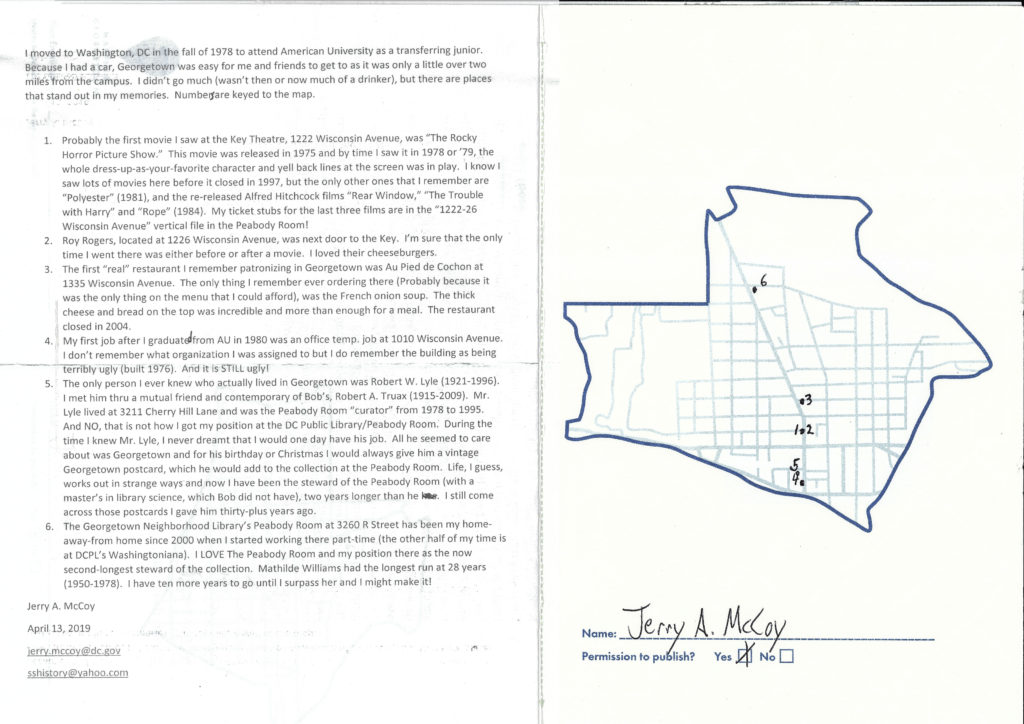 I moved to Washington, DC in the fall of 1978 to attend American University as a transferring junior.
Because I had a car, Georgetown was easy for me and friends to get to as it was only a little over two
miles from the campus.  I didn't go much (wasn't then or now much of a drinker), but there are places
that stand out in my memories.  Numbers are keyed to the map.
1. Probably the first movie I saw at the Key Theatre, 1222 Wisconsin Avenue, was "The Rocky
Horror Picture Show."  This movie was released in 1975 and by time I saw it in 1978 or '79, the
whole dress-up-as-your-favorite character and yell back lines at the screen was in play.  I know I
saw lots of movies here before it closed in 1997, but the only other ones that I remember are
"Polyester" (1981), and the re-released Alfred Hitchcock films "Rear Window," "The Trouble
with Harry" and "Rope" (1984).  My ticket stubs for the last three films are in the "1222-26
Wisconsin Avenue" vertical file in the Peabody Room!
2. Roy Rogers, located at 1226 Wisconsin Avenue, was next door to the Key.  I'm sure that the only
time I went there was either before or after a movie.  I loved their cheeseburgers.
3. The first "real" restaurant I remember patronizing in Georgetown was Au Pied de Cochon at
1335 Wisconsin Avenue.  The only thing I remember ever ordering there (Probably because it
was the only thing on the menu that I could afford), was the French onion soup.  The thick
cheese and bread on the top was incredible and more than enough for a meal.  The restaurant
closed in 2004.
4. My first job after I graduated from AU in 1980 was an office temp. job at 1010 Wisconsin Avenue.
I don't remember what organization I was assigned to but I do remember the building as being
terribly ugly (built 1976).  And it is STILL ugly!
5. The only person I ever knew who actually lived in Georgetown was Robert W. Lyle (1921-1996).
I met him thru a mutual friend and contemporary of Bob's, Robert A. Truax (1915-2009).  Mr.
Lyle lived at 3211 Cherry Hill Lane and was the Peabody Room "curator" from 1978 to 1995.
And NO, that is not how I got my position at the DC Public Library/Peabody Room.  During the
time I knew Mr. Lyle, I never dreamt that I would one day have his job.  All he seemed to care
about was Georgetown and for his birthday or Christmas I would always give him a vintage
Georgetown postcard, which he would add to the collection at the Peabody Room.  Life, I guess,
works out in strange ways and now I have been the steward of the Peabody Room (with a
master's in library science, which Bob did not have), two years longer than he.  I still come
across those postcards I gave him thirty-plus years ago.
6. The Georgetown Neighborhood Library's Peabody Room at 3260 R Street has been my home-
away-from home since 2000 when I started working there part-time (the other half of my time is
at DCPL's Washingtoniana).  I LOVE The Peabody Room and my position there as the now
second-longest steward of the collection.  Mathilde Williams had the longest run at 28 years
(1950-1978).  I have ten more years to go until I surpass her and I might make it!
Jerry A. McCoy
April 13, 2019
jerry.mccoy@dc.gov
sshistory@yahoo.com
6
3
1 2
5
4
Name: Jerry A. McCoy
Permission to publish? Yes No